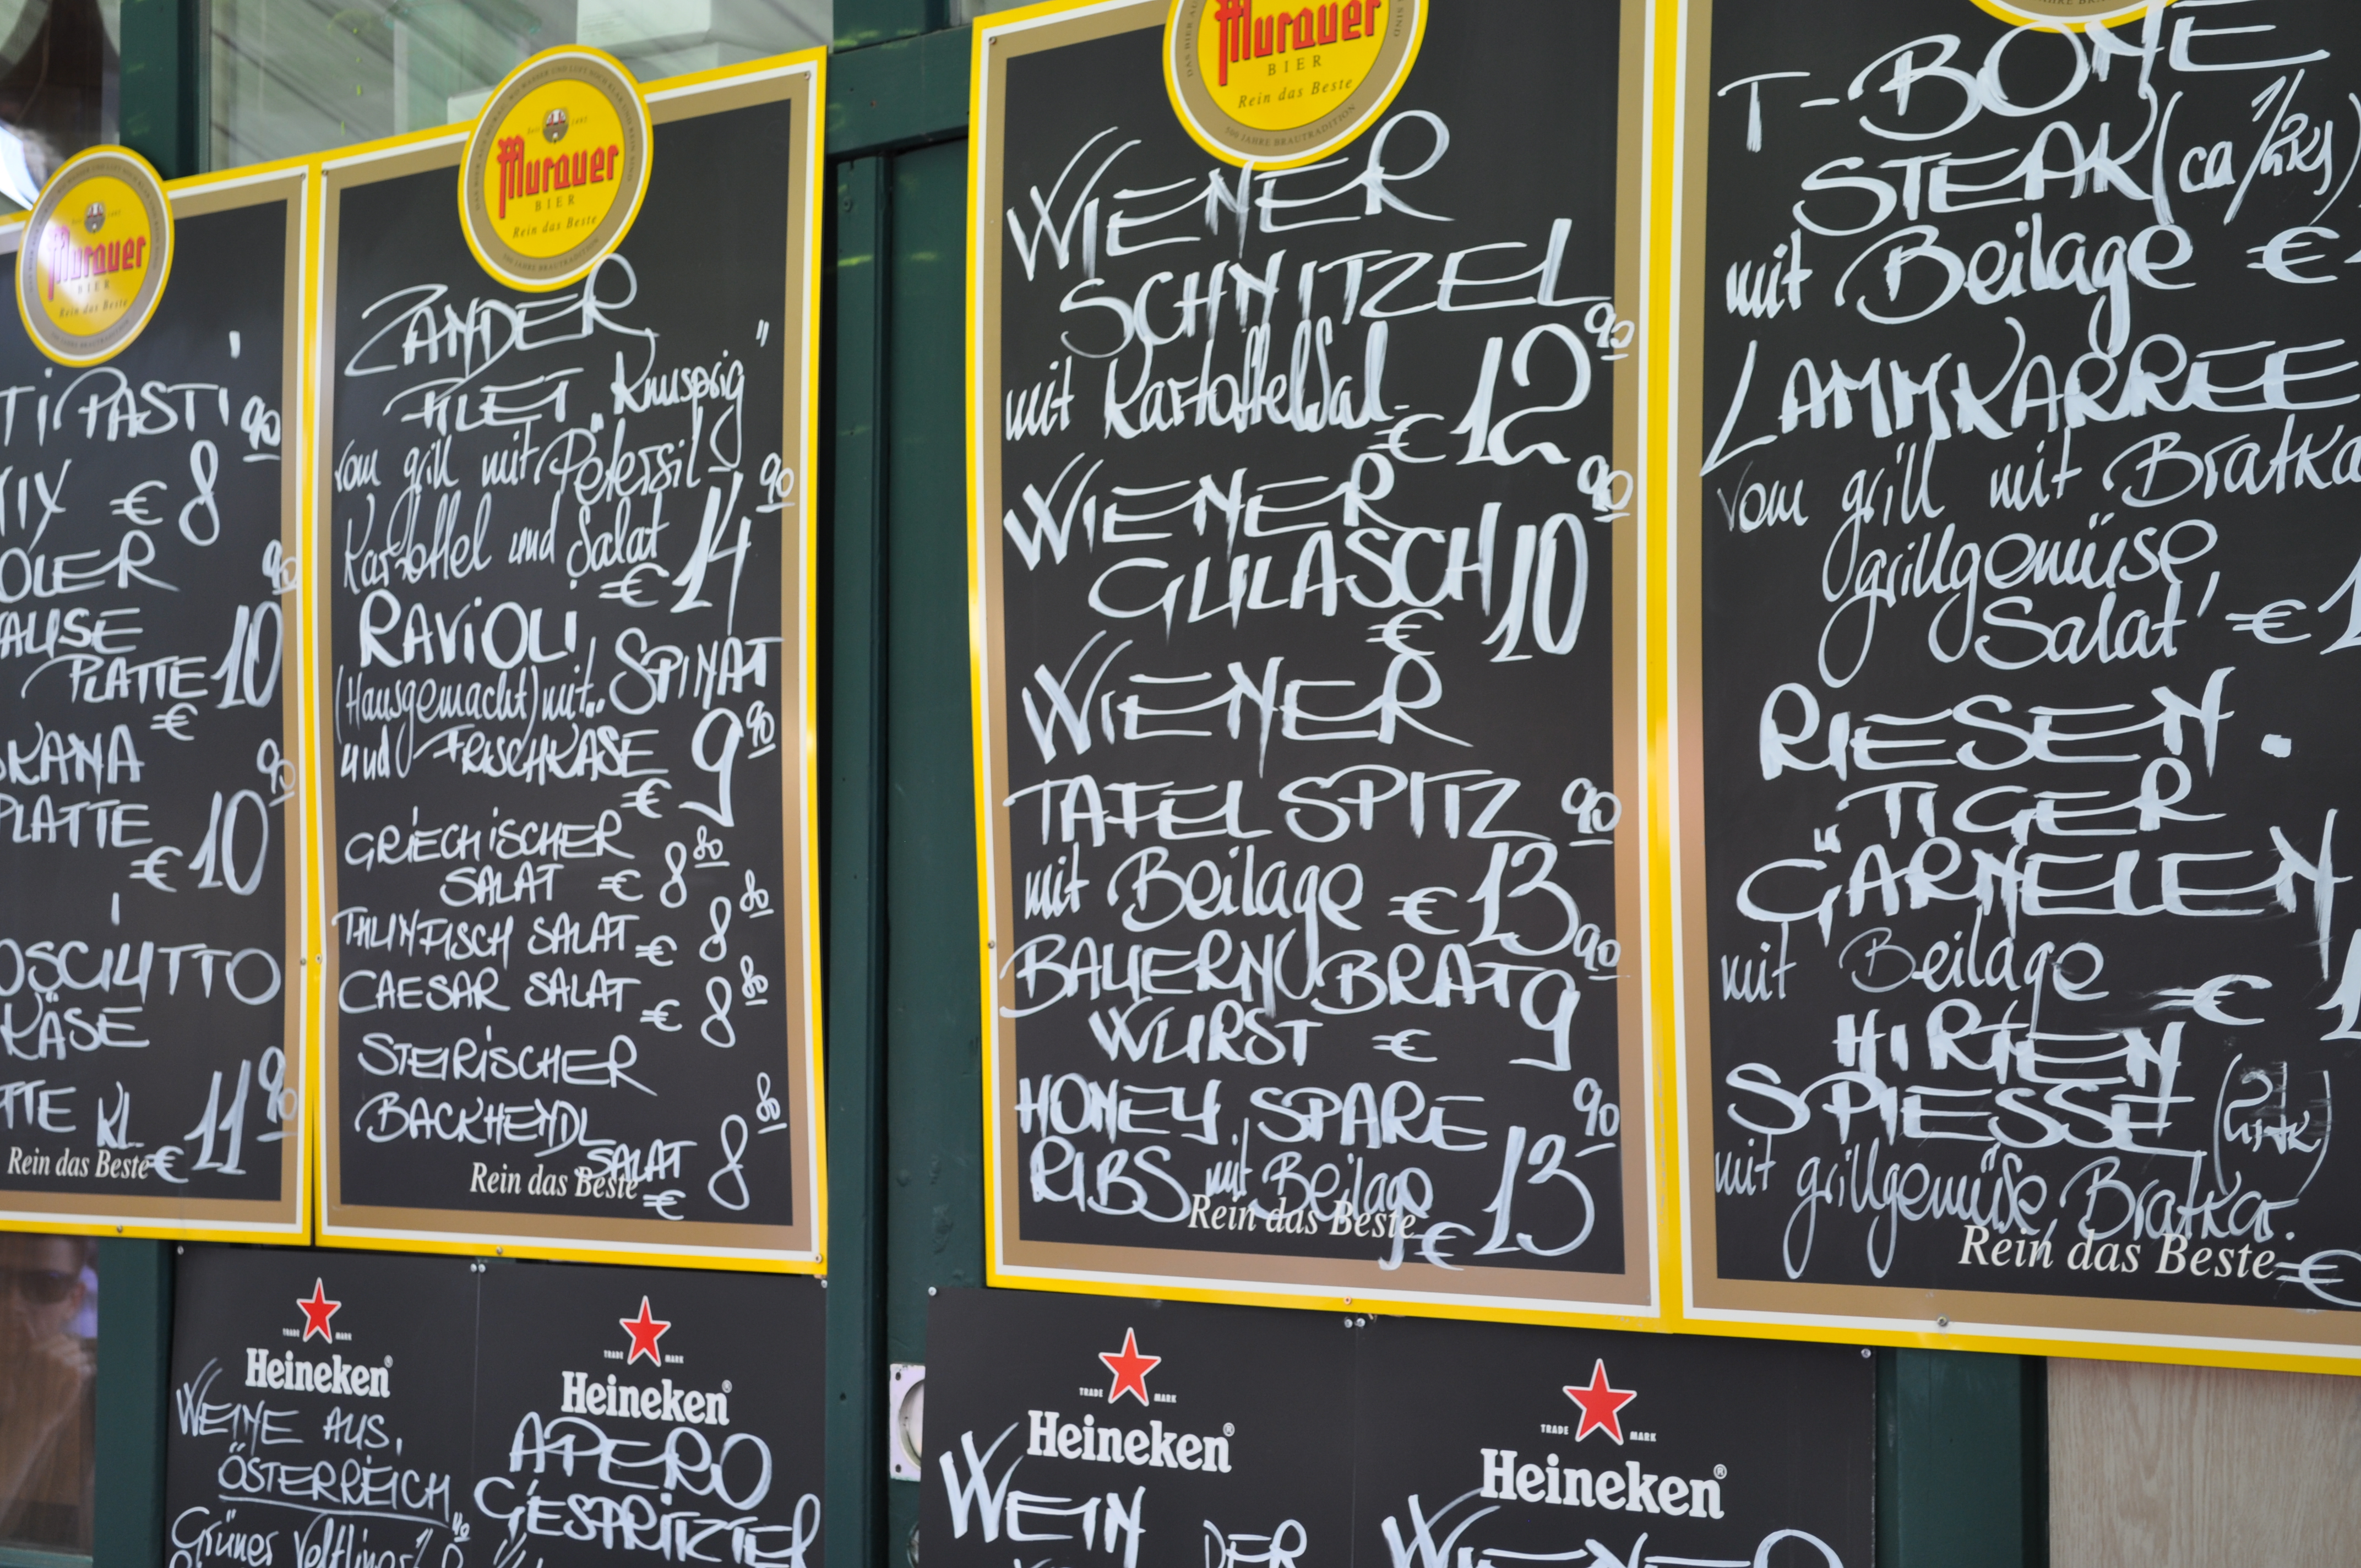 Murauer
BIER
Rein das Beste
TIPASTI
€ 8 90
OLER
AUSE
PLATTE 10 90
€
KANA
PLATTE
€ 10 90
OSCIUTTO
KÄSE
TTE KL.
€ 11 90
Rein das Beste
Murauer
BIER
Rein das Beste
ZANDER
FILET "Knusprig"
vom grill mit Petersil-
Kartoffel und Salat
€ 14 90
RAVIOLI
(Hausgemacht) mit.. SPINAT
und FRISCHKÄSE
€ 9 90
GRIECHISCHER
SALAT € 8 80
THUNFISCH SALAT € 8 80
CAESAR SALAT € 8 80
STEIRISCHER
BACKHENDL
SALAT
€ 8 80
Rein das Beste
Murauer
BIER
Rein das Beste
500 JAHRE BRAUTRADITION
WIENER
SCHNITZEL
mit Kartoffelsal.
€ 12 90
WIENER
GULASCH
€ 10 90
WIENER
TAFELSPITZ
mit Beilage € 13 90
BAUERN BRAT
WURST € 9 90
HONEY SPARE
RIBS mit Beilage
€ 13 90
Rein das Beste
T-BONE
STEAK (ca 1/2kg)
mit Beilage €
LAMMKARREE
vom grill mit Bratka
grillgemüse,
Salat €
RIESEN.
TIGER
GARNELEN
mit Beilage €
HIRTEN
SPIESSE
mit grillgemüse, Bratka.
€
Rein das Beste
TRADE MARK
Heineken®
WEINE AUS
ÖSTERREICH
Grüner Veltliner
TRADE MARK
Heineken®
APERO
GESPRITZTER
TRADE MARK
Heineken®
WEIN
DER
TRADE MARK
Heineken®
WIENER